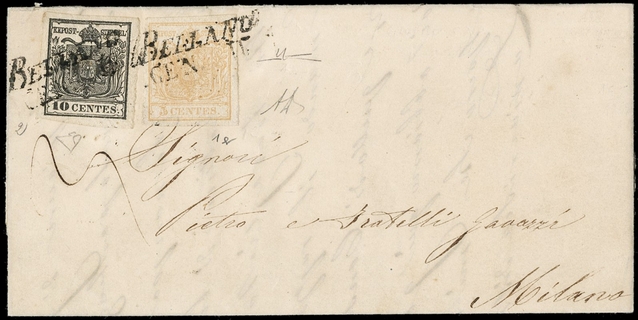 KKPOST-STEMPEL
10 CENTES.
5 CENTES.
BELLANO
GEN
Signori
Pietro e Fratelli Gavazzi
Milano